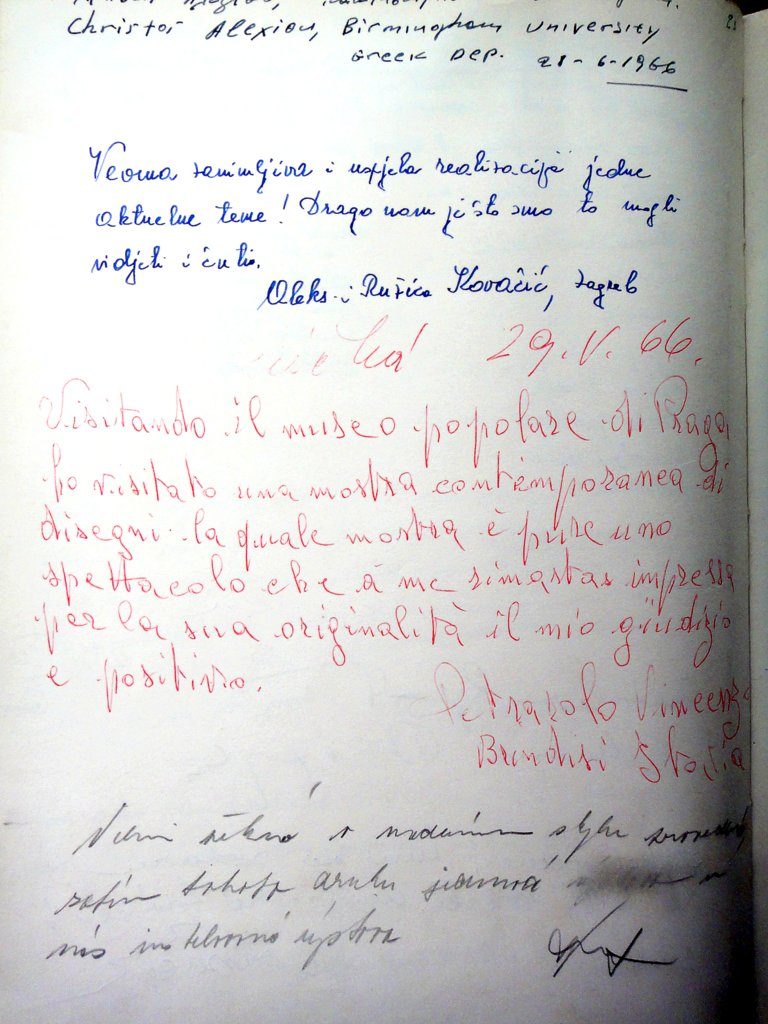 Christos Alexiou, Birmingham University
Greek Dep. 28-6-1966
Veoma zanimljiva i uspjela realizacija jedne
aktuelne teme! Drago nam je što smo to mogli
vidjeti i čuti.
Aleks. i Ružica Kovačić, Zagreb
29.V.66.
Visitando il museo popolare di Praga
ho visitato una mostra contemporanea di
disegni la quale mostra è pure uno
spettacolo che a me rimastas impressa
per la sua originalità il mio giudizio
e positivo.
Petrarolo Vincenzo
Brindisi Italia
Velmi pěkná v moderním stylu
zatím tohoto druhu
nás instalovaná výstava